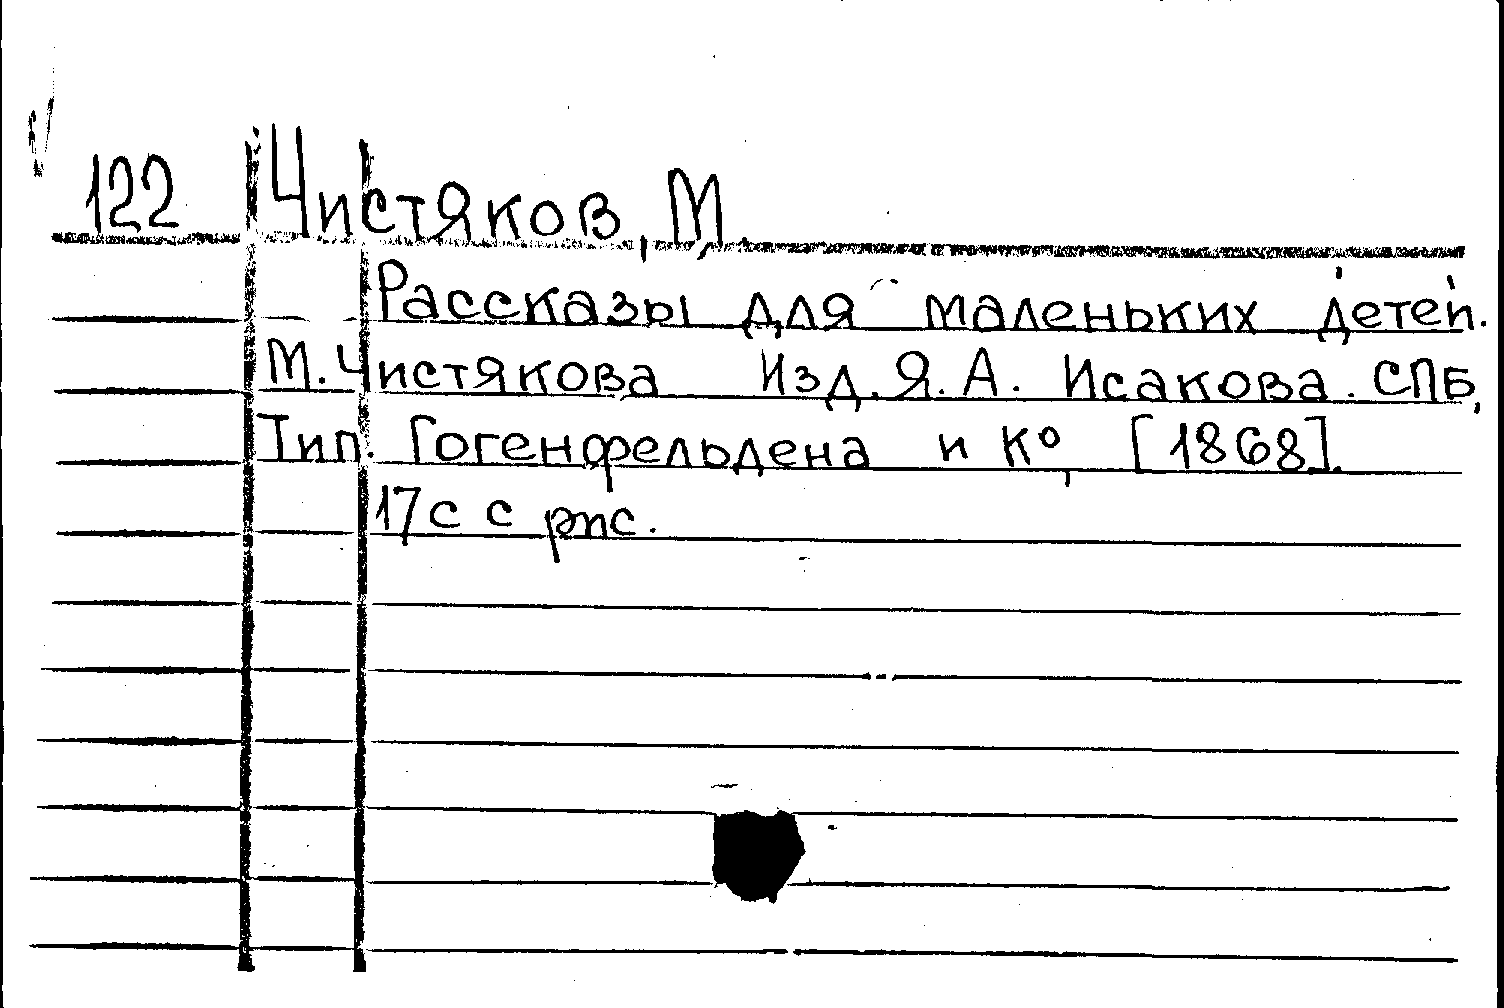 122 Чистяков, М.
Рассказы для маленьких детей.
М. Чистякова Изд. Я. А. Исакова. СПБ,
Тип. Гогенфельдена и К°, [1868].
17с с рис.